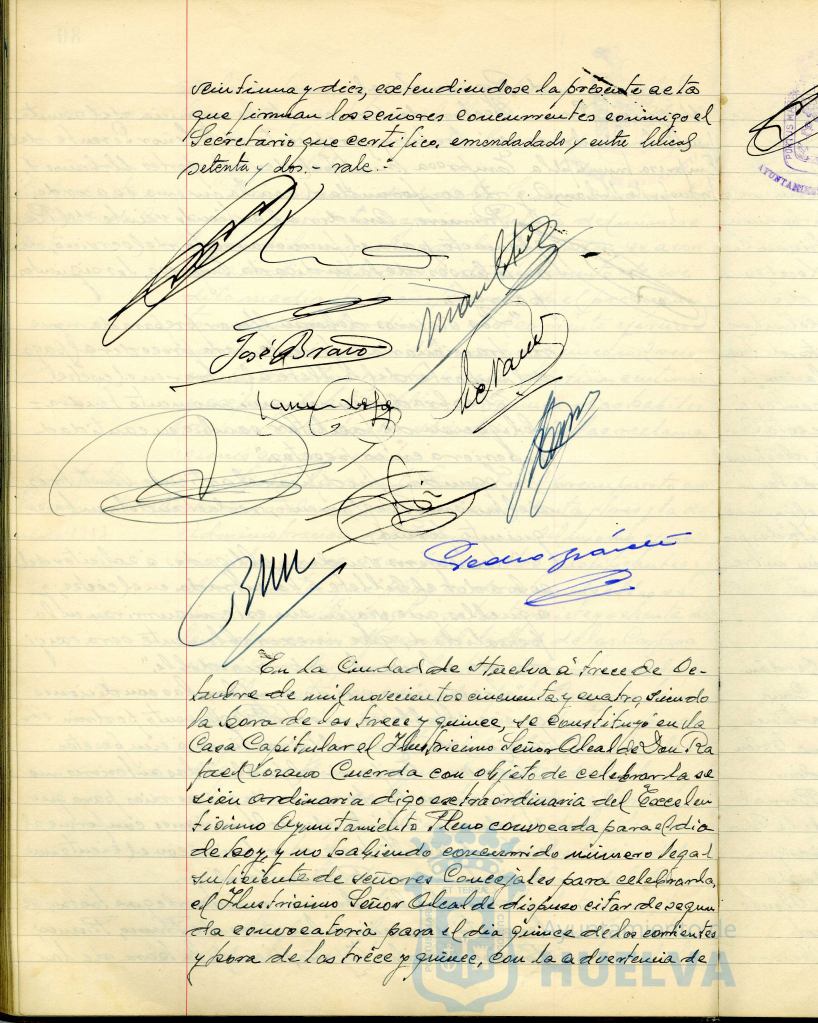 veintiuna y diez, extendiendose la presente acta
que firman los señores concurrentes conmigo el
Secretario que certifico, emendadado y entre lineas
setenta y dos.- vale.-
José Bravo
Pedro
En la Ciudad de Huelva á trece de Oc-
tubre de mil novecientos cincuenta y cuatro, siendo
la hora de las trece y quince, se constituyó en la
Casa Capitular el Ilustrisimo Señor Alcalde Don Ra
fael Lozano Cuerda con objeto de celebrar la se
sión ordinaria digo extraordinaria del Excelen
tisimo Ayuntamiento Pleno convocada para el dia
de hoy, y no habiendo concurrido número legal
suficiente de señores Concejales para celebrarla,
el Ilustrisimo Señor Alcalde dispuso citar de segun
da convocatoria para el dia quince de los corrientes
y hora de las trece y quince, con la advertencia de
HUELVA